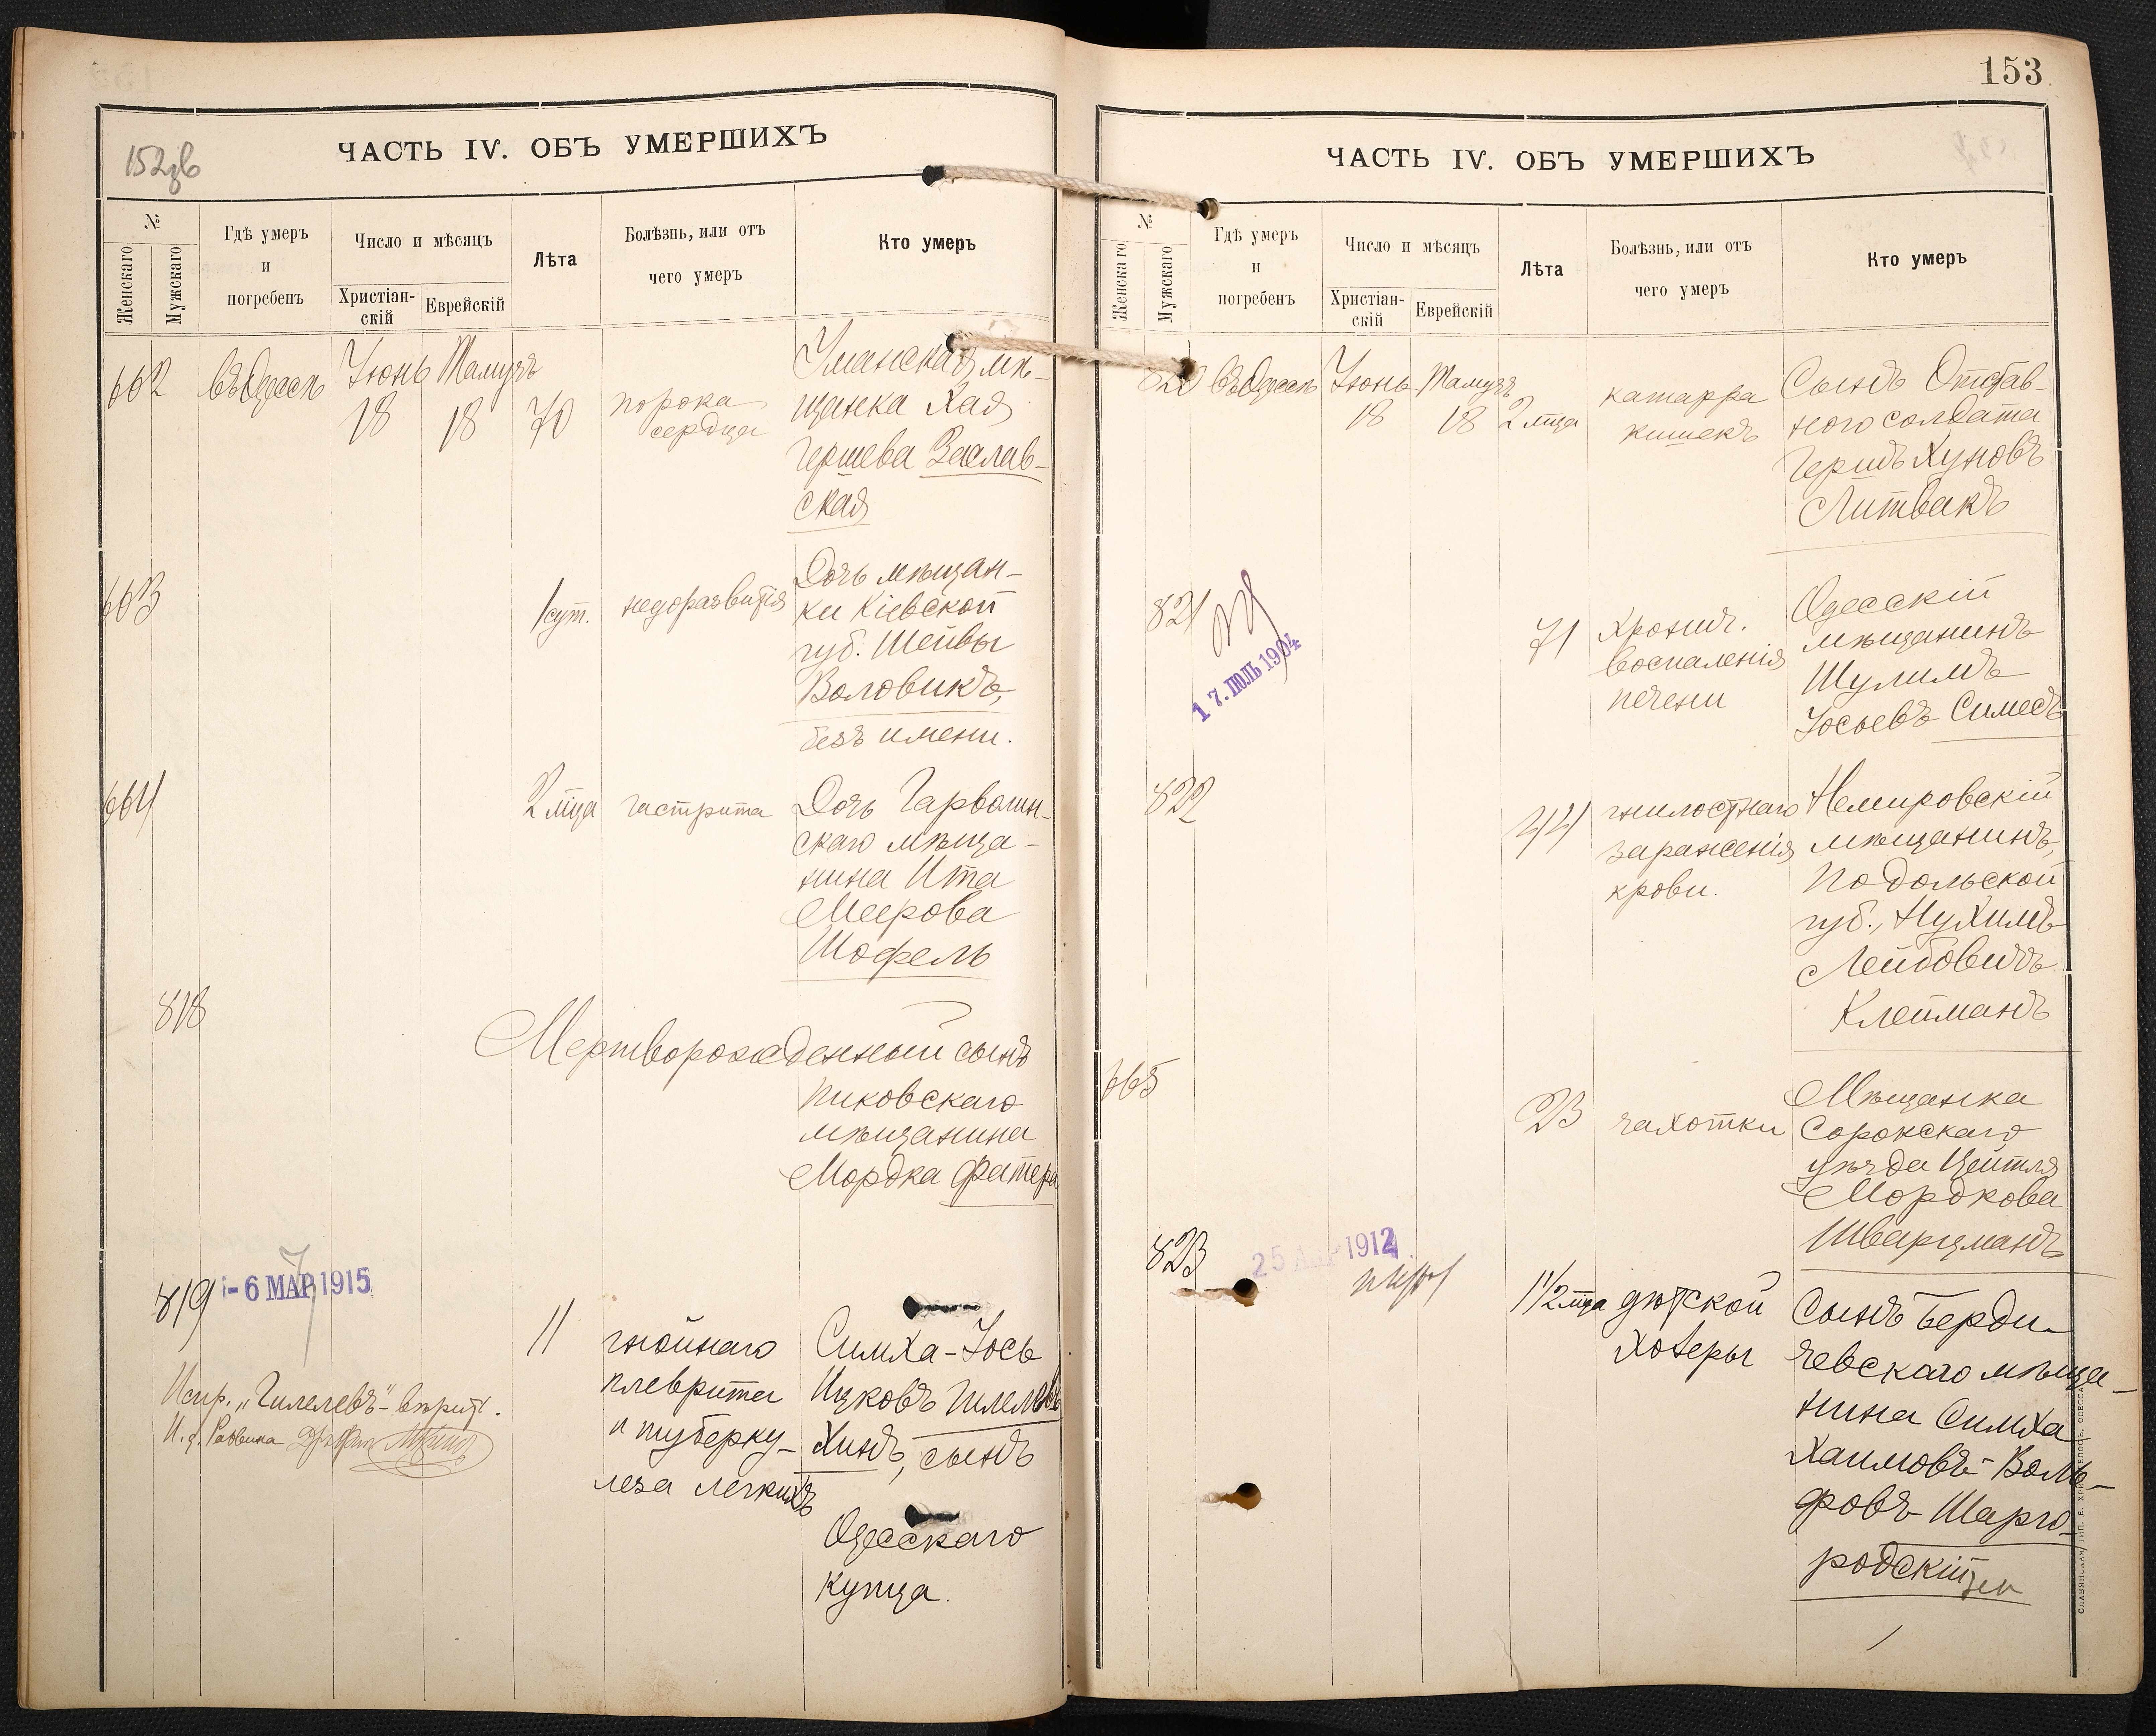 152
ЧАСТЬ IV. ОБЪ УМЕРШИХЪ
№
Женскаго
Мужскаго
Гдѣ умеръ
и
погребенъ
Число и мѣсяцъ
Христіан-
скій
Еврейскій
Лѣта
Болѣзнь, или отъ
чего умеръ
Кто умеръ
662
въ Одессѣ
Іюнь
18
Тамузъ
18
70
порока
сердца
Уманская мѣ-
щанка Хая
Гершева Заслав-
ская
663
1 сут.
недоразвитія
Дочь мѣщан-
ки Кіевской
губ. Шейвы
Воловикъ,
безъ имени.
664
2 мца
гастрита
Дочь Гарволин-
скаго мѣща-
нина Ита
Меерова
Шофель
818
Мертворожденный сынъ
Пиковскаго
мѣщанина
Мордка Фатера
819
- 6 МАР 1915
11
гнойнаго
плеврита
и туберку-
леза легкихъ
Симха-Іось
Ицковъ Гилеле-
Хинъ, сынъ
Одесскаго
купца.
Испр. „Гилелевъ"-вѣрит.
И. д. Раввина
153
ЧАСТЬ IV. ОБЪ УМЕРШИХЪ
№
Женскаго
Мужскаго
Гдѣ умеръ
и
погребенъ
Число и мѣсяцъ
Христіан-
скій
Еврейскій
Лѣта
Болѣзнь, или отъ
чего умеръ
Кто умеръ
820
въ Одессѣ
Іюнь
18
Тамузъ
18
2 мца
катарра
кишекъ
Сынъ Отстав-
ного солдата
Гершъ Хуновъ
Литвакъ
821
17. ІЮЛЬ 1904
71
Хронич.
воспаленія
печени
Одесскій
мѣщанинъ
Шулимъ
Іосьевъ Симесъ
822
44
гнилостнаго
зараженія
крови.
Немировскій
мѣщанинъ,
Подольской
губ., Нухимъ
Лейбовичъ
Клейманъ
665
23
чахотки
Мѣщанка
Сорокскаго
уѣзда Цейтля
Мордкова
Шварцманъ
823
25 АПР 1912
1 1/2 мца
дѣтской
холеры
Сынъ Берди-
чевскаго мѣща-
нина Симха
Хаимовъ-Воль-
фовъ-Шарго-
родскій
СЛАВЯНСКАЯ ТИП. Е. ХРИСОГЕЛОСЪ, ОДЕССА